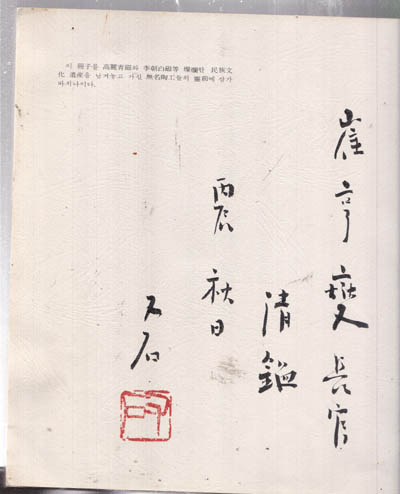 이 冊子를 高麗靑磁와 李朝白磁等 燦爛한 民族文
化 遺産을 남겨놓고 가신 無名陶工들의 靈前에 삼가
바치나이다.
崔亨燮長官
淸鑑
丙辰 秋日
石